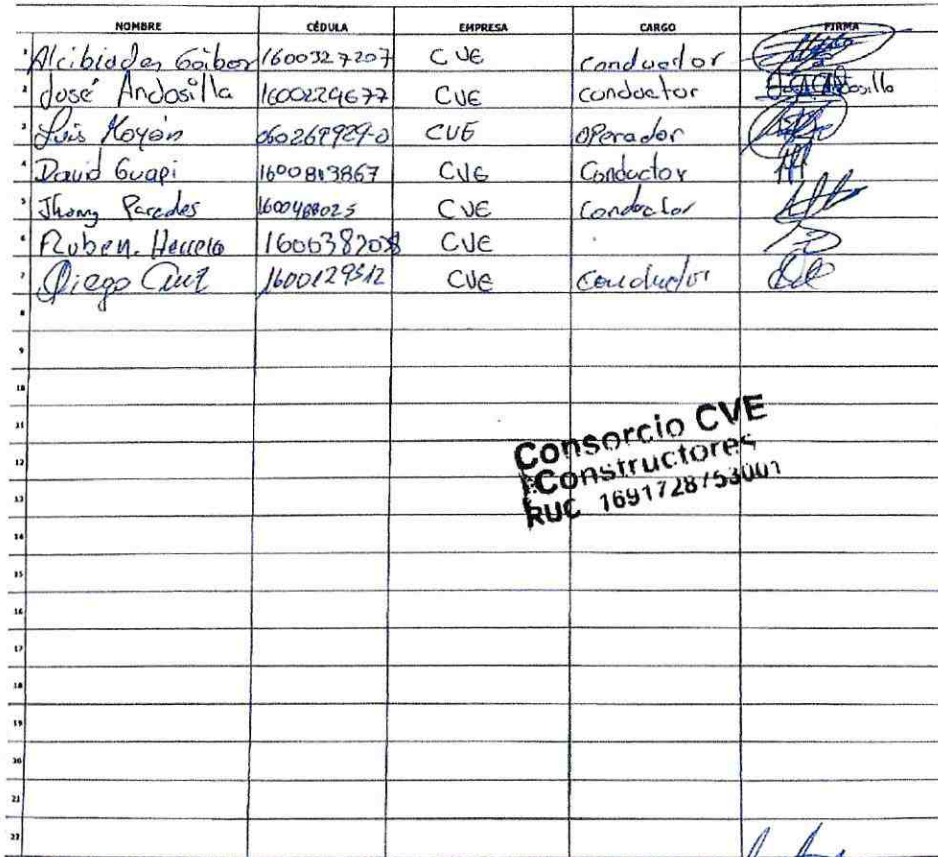 NOMBRE CÉDULA EMPRESA CARGO FIRMA
1 Alcibiades Goibor 1600327207 CVE conductor
2 José Andosilla 1600229677 CVE conductor
3 Luis Moyón 060269929-0 CVE operador
4 David Guapi 1600813867 CVE Conductor
5 Jhony Paredes 1600468025 CVE Conductor
6 Ruben. Herrera 1600382038 CVE
7 Diego Cruz 1600129312 CVE Conductor
8
9
10
11
12
13
14
15
16
17
18
19
20
21
22
Consorcio CVE
Constructores
RUC 1691728753001